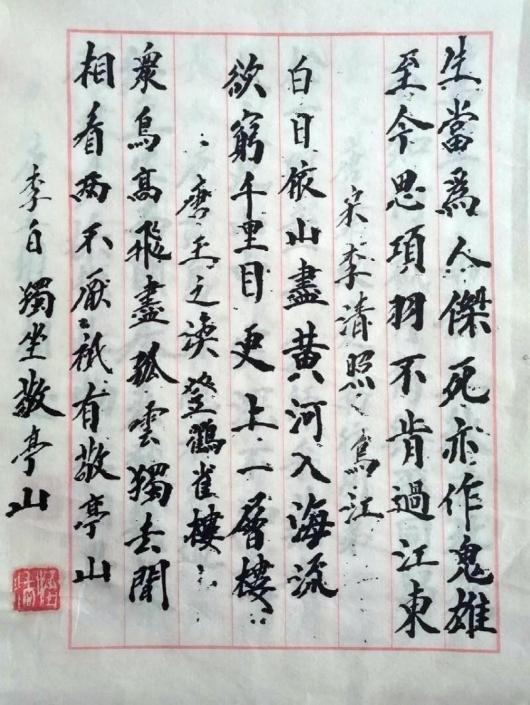 生當爲人傑死亦作鬼雄
至今思項羽不肯過江東
宋李清照烏江
白日依山盡黄河入海流
欲窮千里目更上一層樓
唐王之渙登鸛雀樓
衆鳥高飛盡孤雲獨去閒
相看兩不厭祇有敬亭山
李白獨坐敬亭山